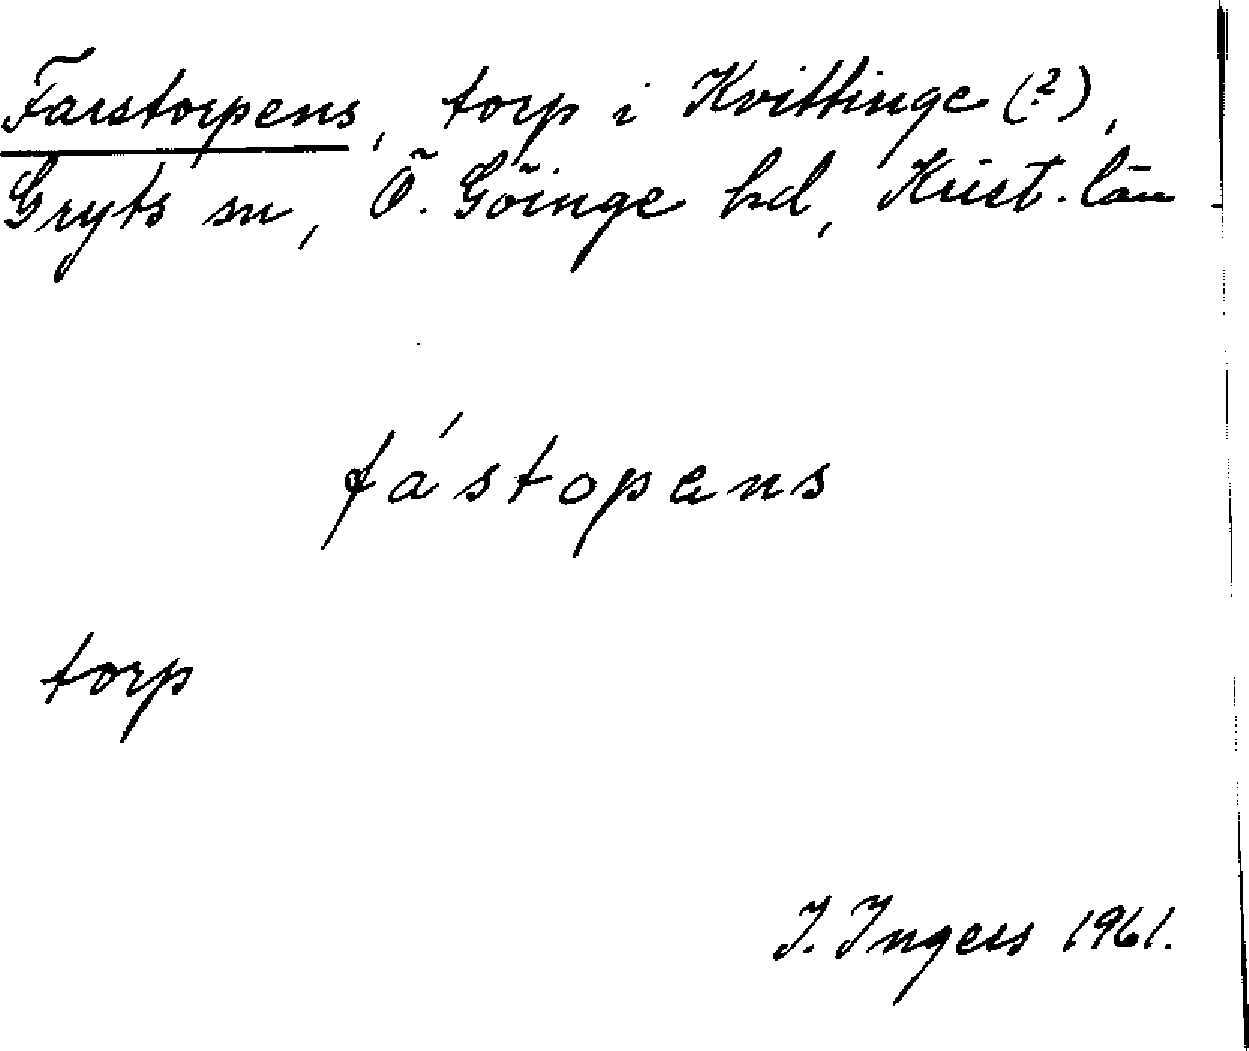 Farstorpens, torp i Kvittinge (?),
Gryts sn, Ö. Göinge hd, Krist. län
fá´stopens
torp
I. Ingers 1961.